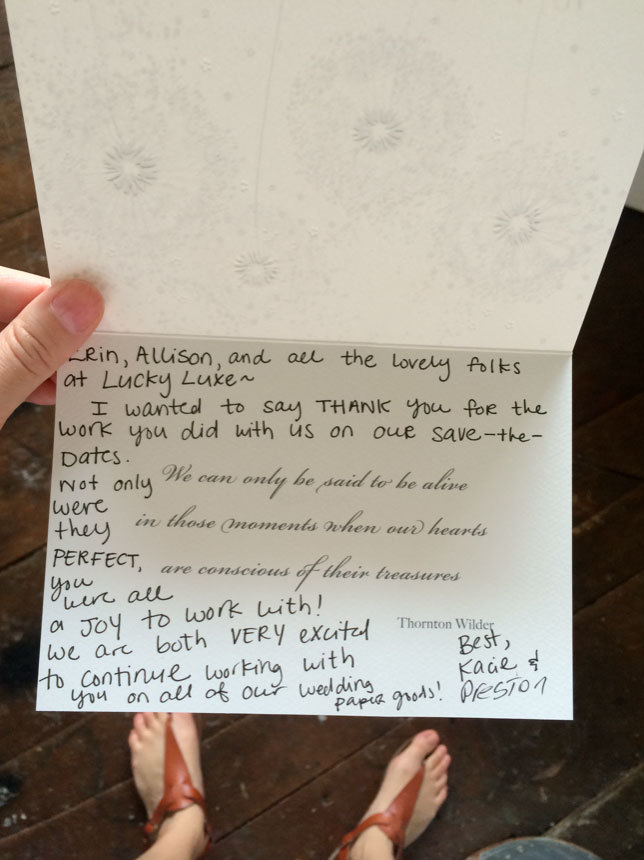 Erin, Allison, and all the lovely folks
at Lucky Luxe~
I wanted to say THANK you for the
work you did with us on our save-the-
Dates.
Not only
were
they
PERFECT,
you
were all
a JOY to work with!
we are both VERY excited
to continue working with
you on all of our wedding
paper goods!
We can only be said to be alive
in those moments when our hearts
are conscious of their treasures
Thornton Wilder
Best,
Kacie &
PRESTON